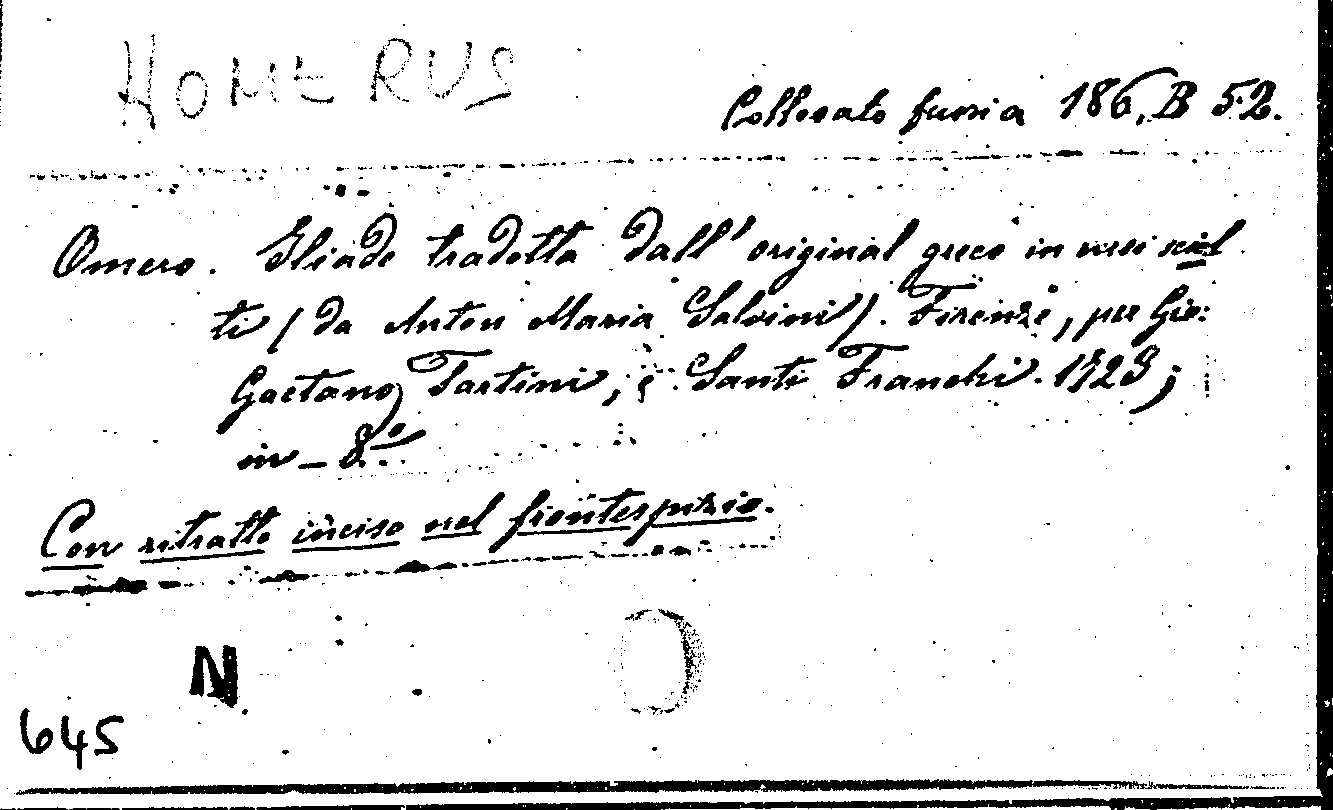 HOMERUS
Collocato fuori a 186, B 52.
Omero. Iliade tradotta dall' original greco in versi sciol
ti (da Anton Maria Salvini). Firenze, per Gio:
Gaetano Tartini, e Santi Franchi. 1723;
in-8.º
Con ritratto inciso nel frontespizio.
N
645